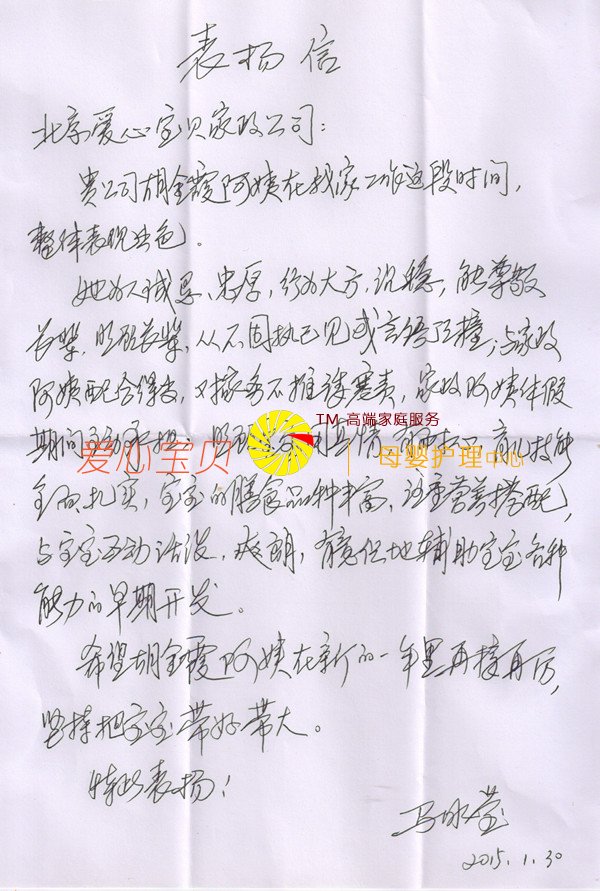 表扬信
北京爱心宝贝家政公司:
贵公司胡金霞阿姨在我家工作这段时间,
整体表现出色。
她为人诚恳、忠厚,行为大方,沉稳,能尊敬
长辈,从不固执己见或言语顶撞;与家政
阿姨配合得当,对家务不推诿塞责,家政阿姨休假
期间主动承担
TM 高端家庭服务
爱心宝贝
母婴护理中心
全面扎实,宝宝的膳食品种丰富,注重营养搭配,
与宝宝互动活泼,爽朗,有意识地辅助宝宝各种
能力的早期开发。
希望胡金霞阿姨在新的一年里再接再厉,
坚持把宝宝带好带大。
特此表扬!
马冰莹
2015.1.30